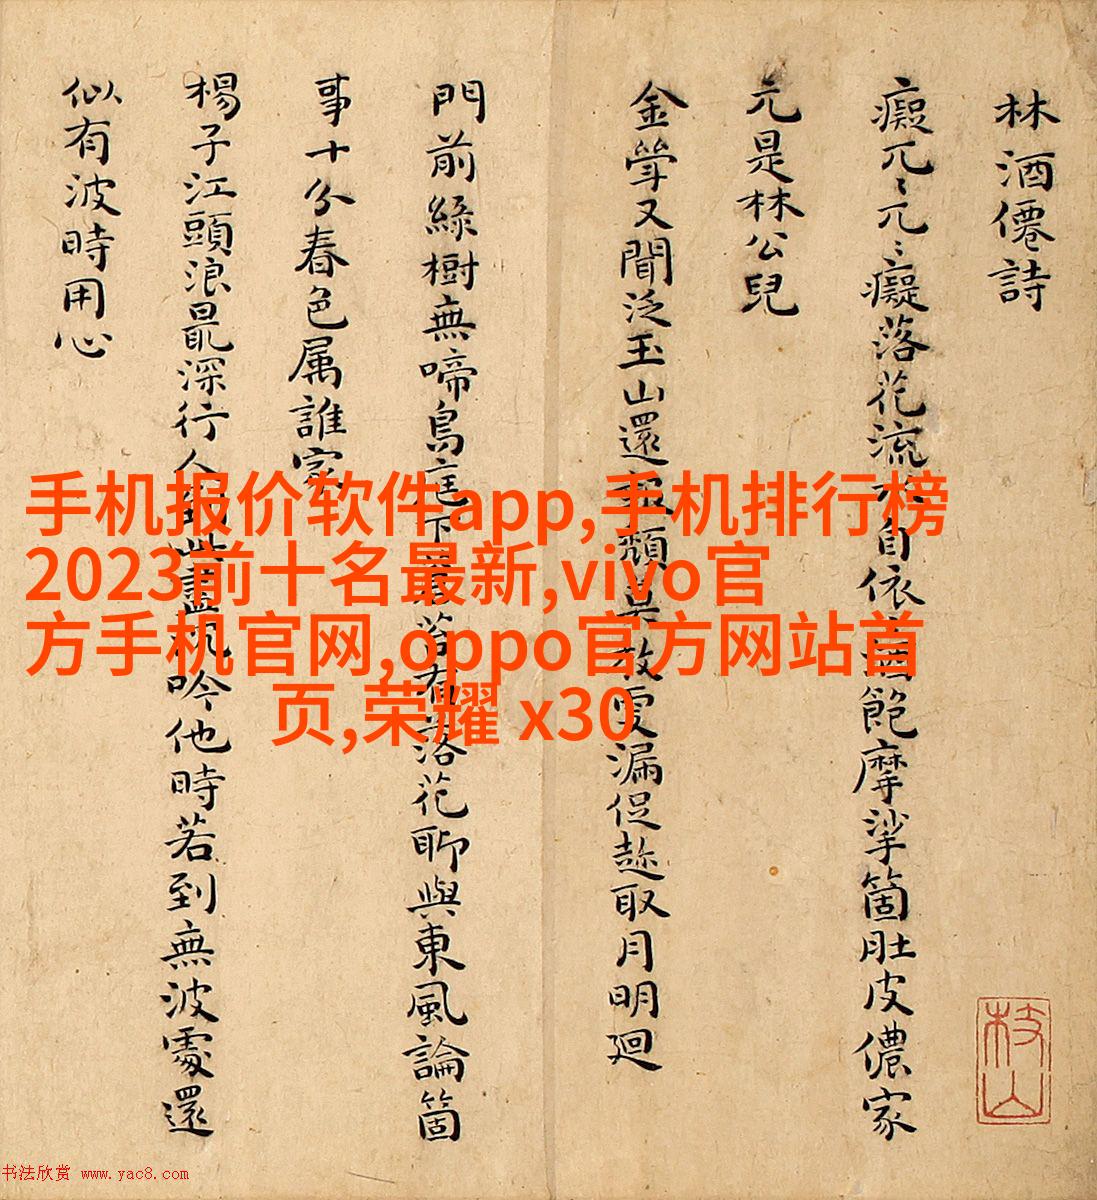 林酒僊詩
癡兀〻兀〻癡落花流水自依
飽摩挲箇肚皮儂家
元是林公兒
金斝又聞泛玉山還
頹莫教更漏促趂取月明廻
門前綠樹無啼鳥庭下
蒼苔有落花聊與東風論箇
事十分春色属誰家
楊子江頭浪最深行人到此盡
吟他時若到無波處還
似有波時用心
枝山
手机报价软件app,手机排行榜
2023前十名最新,vivo官
方手机官网,oppo官方网站首
页,荣耀 x30
书法欣赏 www.yac8.com